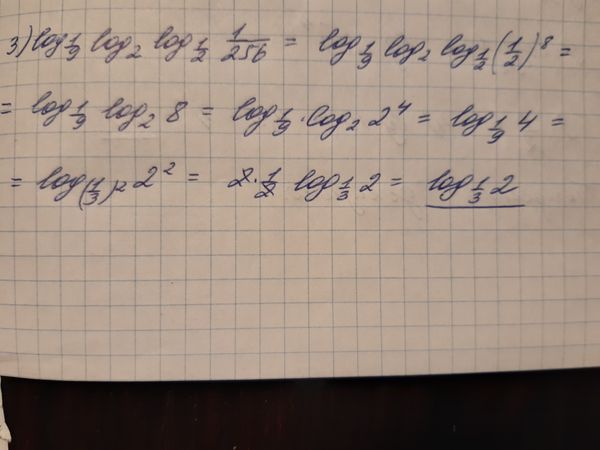 3) log_{1/9} log_2 log_{1/2} 1/256 = log_{1/9} log_2 log_{1/2} (1/2)^8 =
= log_{1/9} log_2 8 = log_{1/9} · log_2 2^4 = log_{1/9} 4 =
= log_{(1/3)^2} 2^2 = 2 · 1/2 log_{1/3} 2 = log_{1/3} 2